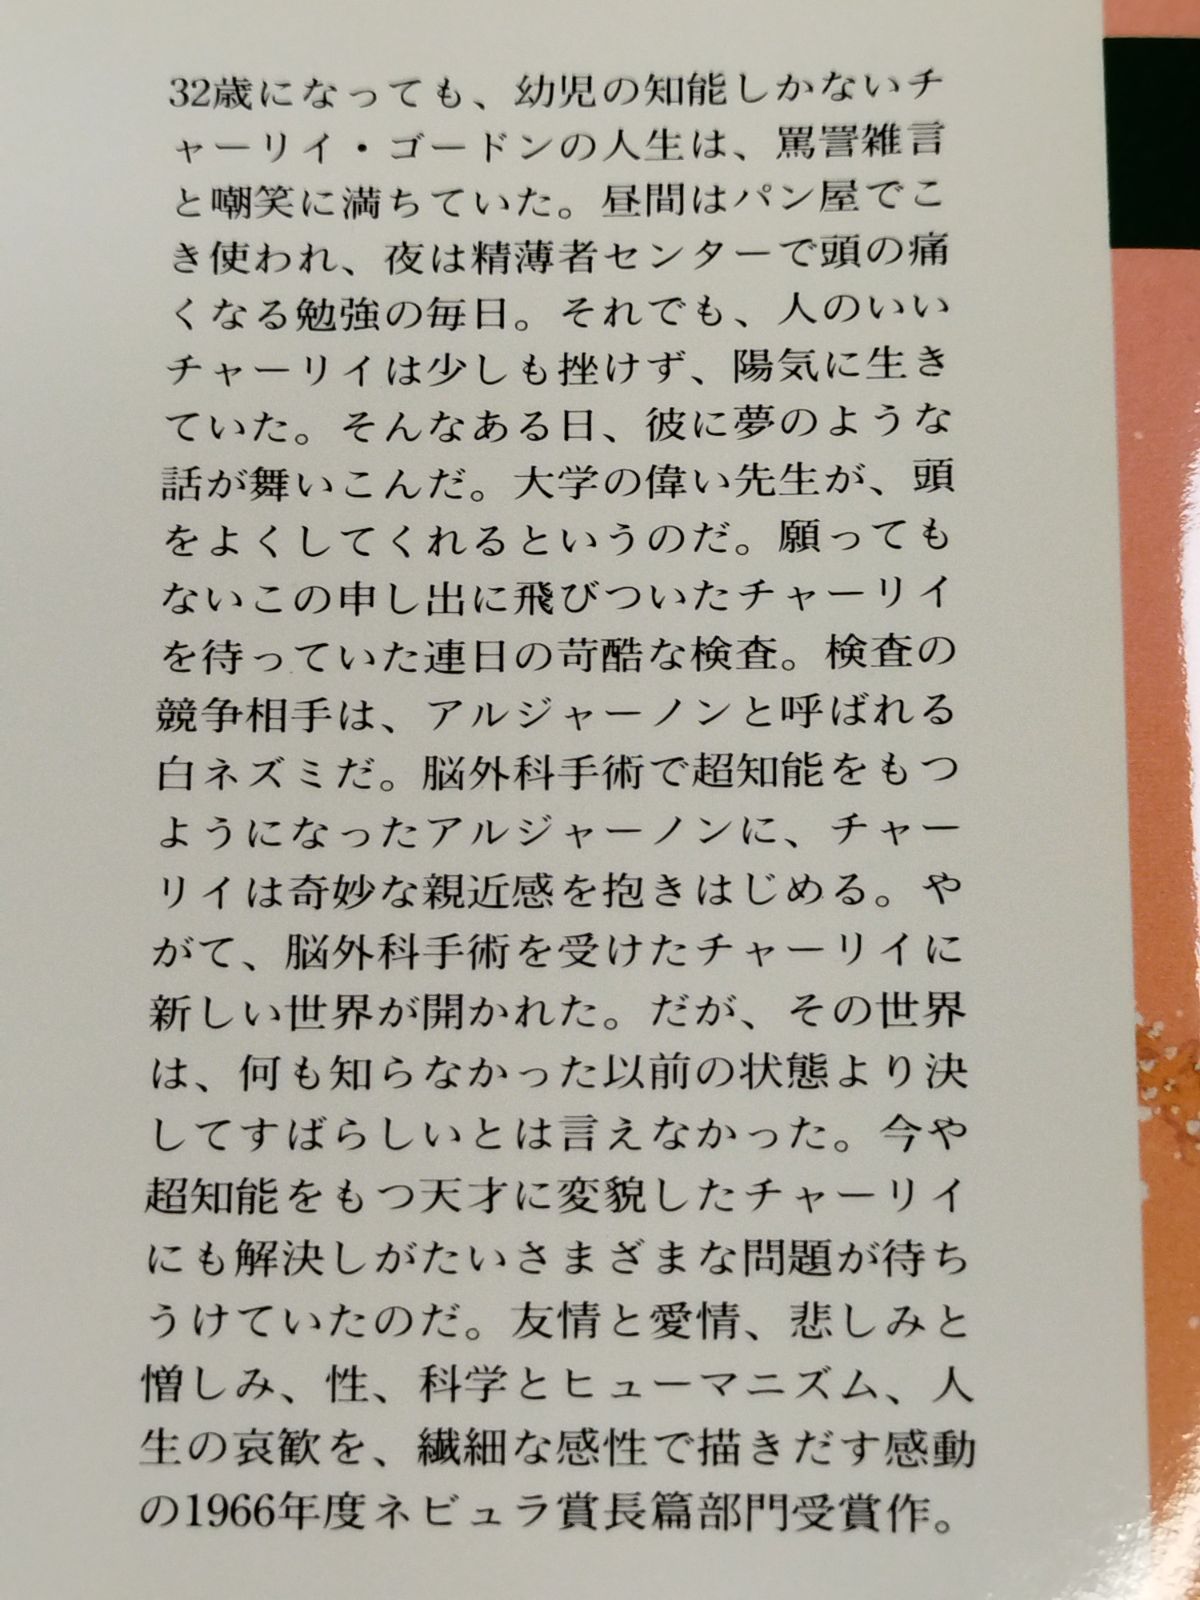 32歳になっても、幼児の知能しかないチ
ャーリイ・ゴードンの人生は、罵詈雑言
と嘲笑に満ちていた。昼間はパン屋でこ
き使われ、夜は精薄者センターで頭の痛
くなる勉強の毎日。それでも、人のいい
チャーリイは少しも挫けず、陽気に生き
ていた。そんなある日、彼に夢のような
話が舞いこんだ。大学の偉い先生が、頭
をよくしてくれるというのだ。願っても
ないこの申し出に飛びついたチャーリイ
を待っていた連日の苛酷な検査。検査の
競争相手は、アルジャーノンと呼ばれる
白ネズミだ。脳外科手術で超知能をもつ
ようになったアルジャーノンに、チャー
リイは奇妙な親近感を抱きはじめる。や
がて、脳外科手術を受けたチャーリイに
新しい世界が開かれた。だが、その世界
は、何も知らなかった以前の状態より決
してすばらしいとは言えなかった。今や
超知能をもつ天才に変貌したチャーリイ
にも解決しがたいさまざまな問題が待ち
うけていたのだ。友情と愛情、悲しみと
憎しみ、性、科学とヒューマニズム、人
生の哀歓を、繊細な感性で描きだす感動
の1966年度ネビュラ賞長篇部門受賞作。